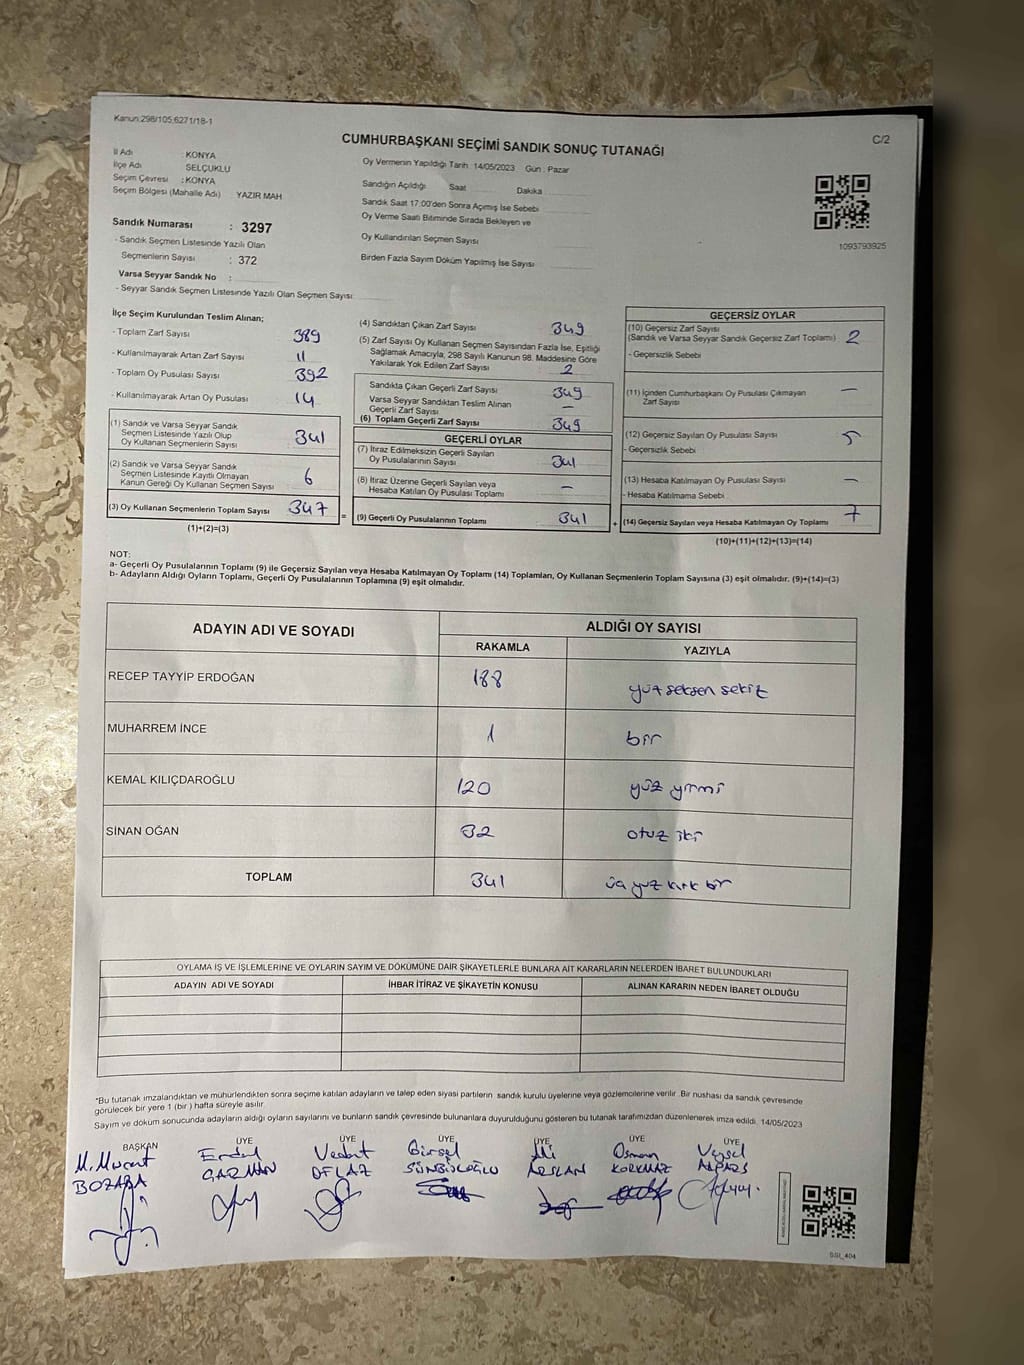 Kanun:298/105;6271/18-1
C/2
CUMHURBAŞKANI SEÇİMİ SANDIK SONUÇ TUTANAĞI
İl Adı : KONYA
İlçe Adı SELÇUKLU
Seçim Çevresi : KONYA
Seçim Bölgesi (Mahalle Adı) YAZIR MAH
Sandık Numarası : 3297
- Sandık Seçmen Listesinde Yazılı Olan
Seçmenlerin Sayısı : 372
Varsa Seyyar Sandık No :
- Seyyar Sandık Seçmen Listesinde Yazılı Olan Seçmen Sayısı
Oy Vermenin Yapıldığı Tarih : 14/05/2023 Gün : Pazar
Sandığın Açıldığı Saat Dakika
Sandık Saat 17:00'den Sonra Açımış İse Sebebi
Oy Verme Saati Bitiminde Sırada Bekleyen ve
Oy Kullandırılan Seçmen Sayısı
Birden Fazla Sayım Döküm Yapılmış İse Sayısı
1093793925
İlçe Seçim Kurulundan Teslim Alınan;
- Toplam Zarf Sayısı 389
- Kullanılmayarak Artan Zarf Sayısı 11
- Toplam Oy Pusulası Sayısı 392
- Kullanılmayarak Artan Oy Pusulası 14
(1) Sandık ve Varsa Seyyar Sandık
Seçmen Listesinde Yazılı Olup
Oy Kullanan Seçmenlerin Sayısı 341
(2) Sandık ve Varsa Seyyar Sandık
Seçmen Listesinde Kayıtlı Olmayan
Kanun Gereği Oy Kullanan Seçmen Sayısı 6
(3) Oy Kullanan Seçmenlerin Toplam Sayısı 347
(1)+(2)=(3)
(4) Sandıktan Çıkan Zarf Sayısı 349
(5) Zarf Sayısı Oy Kullanan Seçmen Sayısından Fazla İse, Eşitliği
Sağlamak Amacıyla, 298 Sayılı Kanunun 98. Maddesine Göre
Yakılarak Yok Edilen Zarf Sayısı 2
Sandıkta Çıkan Geçerli Zarf Sayısı 349
Varsa Seyyar Sandıktan Teslim Alınan
Geçerli Zarf Sayısı —
(6) Toplam Geçerli Zarf Sayısı 349
GEÇERLİ OYLAR
(7) İtiraz Edilmeksizin Geçerli Sayılan
Oy Pusulalarının Sayısı 341
(8) İtiraz Üzerine Geçerli Sayılan veya
Hesaba Katılan Oy Pusulası Toplamı —
= (9) Geçerli Oy Pusulalarının Toplamı 341 +
GEÇERSİZ OYLAR
(10) Geçersiz Zarf Sayısı
(Sandık ve Varsa Seyyar Sandık Geçersiz Zarf Toplamı) 2
- Geçersizlik Sebebi
(11) İçinden Cumhurbaşkanı Oy Pusulası Çıkmayan
Zarf Sayısı —
(12) Geçersiz Sayılan Oy Pusulası Sayısı 5
- Geçersizlik Sebebi
(13) Hesaba Katılmayan Oy Pusulası Sayısı —
- Hesaba Katılmama Sebebi
(14) Geçersiz Sayılan veya Hesaba Katılmayan Oy Toplamı 7
(10)+(11)+(12)+(13)=(14)
NOT:
a- Geçerli Oy Pusulalarının Toplamı (9) ile Geçersiz Sayılan veya Hesaba Katılmayan Oy Toplamı (14) Toplamları, Oy Kullanan Seçmenlerin Toplam Sayısına (3) eşit olmalıdır. (9)+(14)=(3)
b- Adayların Aldığı Oyların Toplamı, Geçerli Oy Pusulalarının Toplamına (9) eşit olmalıdır.
ADAYIN ADI VE SOYADI ALDIĞI OY SAYISI
RAKAMLA YAZIYLA
RECEP TAYYİP ERDOĞAN 188 yüz seksen sekiz
MUHARREM İNCE 1 bir
KEMAL KILIÇDAROĞLU 120 yüz yirmi
SİNAN OĞAN 32 otuz iki
TOPLAM 341 üç yüz kırk bir
OYLAMA İŞ VE İŞLEMLERİNE VE OYLARIN SAYIM VE DÖKÜMÜNE DAİR ŞİKAYETLERLE BUNLARA AİT KARARLARIN NELERDEN İBARET BULUNDUKLARI
ADAYIN ADI VE SOYADI İHBAR İTİRAZ VE ŞİKAYETİN KONUSU ALINAN KARARIN NEDEN İBARET OLDUĞU
*Bu tutanak imzalandıktan ve mühürlendikten sonra seçime katılan adayların ve talep eden siyasi partilerin sandık kurulu üyelerine veya gözlemcilerine verilir .Bir nushası da sandık çevresinde
görülecek bir yere 1 (bir ) hafta süreyle asılır.
Sayım ve döküm sonucunda adayların aldığı oyların sayılarını ve bunların sandık çevresinde bulunanlara duyurulduğunu gösteren bu tutanak tarafımızdan düzenlenerek imza edildi. 14/05/2023
BAŞKAN ÜYE ÜYE ÜYE ÜYE ÜYE ÜYE
M. Murat Erdal Vedat Birsel Ali Osman Veysel
BOZABA OFLAZ ARSLAN KORKMAZ
SSI_404